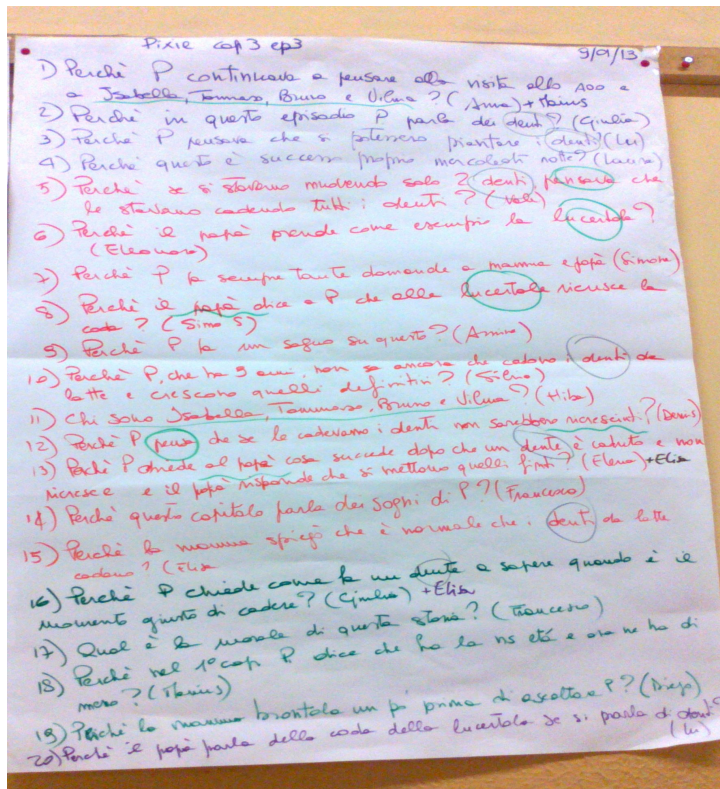 Pixie cap 3 ep3 9/01/13
1) Perchè P continuava a pensare alla visita allo zoo e
a Isabella, Tommaso, Bruno e Vilma? (Anna) + Marius
2) Perchè in questo episodio P parla dei denti? (Giulia)
3) Perchè P pensava che si potessero piantare i denti? (Lu)
4) Perchè questo è successo proprio mercoledì notte? (Laura)
5) Perchè se si stavano muovendo solo 2 denti, pensava che
le stavano cadendo tutti i denti? (Vale)
6) Perchè il papà prende come esempio la lucertola?
(Eleonora)
7) Perchè P fa sempre tante domande a mamma e papà (Simone)
8) Perchè il papà dice a P che alla lucertola ricresce la
coda? (Simo S)
9) Perchè P fa un sogno su questo? (Amina)
10) Perchè P, che ha 9 anni, non sa ancora che cadono i denti da
latte e crescono quelli definitivi? (Silvia)
11) Chi sono Isabella, Tommaso, Bruno e Vilma? (Hiba)
12) Perchè P pensa che se le cadevano i denti non sarebbero ricresciuti? (Denis)
13) Perchè P chiede al papà cosa succede dopo che un dente è caduto e non
ricresce e il papà risponde che si mettono quelli finti? (Elena) + Elisa
14) Perchè questo capitolo parla dei sogni di P? (Francesco)
15) Perchè la mamma spiegò che è normale che i denti da latte
cadano? (Elisa
16) Perchè P chiede come fa un dente a sapere quando è il
momento giusto di cadere? (Giulia) + Elisa
17) Qual è la morale di questa storia? (Francesco)
18) Perchè nel 1° cap P dice che ha la ns età e ora ne ha di
meno? (Marius)
19) Perchè la mamma brontola un pò prima di ascoltare P? (Diego)
20) Perchè il papà parla della coda della lucertola se si parla di denti?
(Lu)